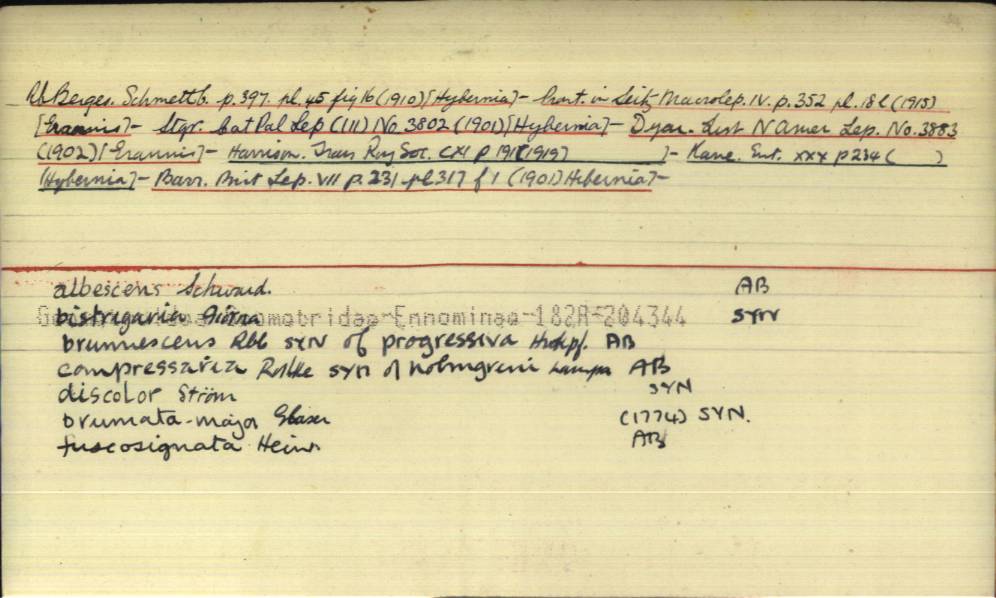 Rb. Berges. Schmettb. p.397. pl 45 fig 16 (1910) [Hybernia]- Prout. in Seitz Macrolep. IV. p.352 pl. 18 l (1915)
[Erannis]- Stgr. Cat Pal Lep (III) No. 3802 (1901) [Hybernia]- Dyar. List N Amer Lep. No. 3883
(1902) [Erannis]- Harrison. Trans Roy Soc. CXI p 191 (1919) ]- Kane. Ent. XXX p 234 ( )
[Hybernia]- Barr. Brit Lep. VII p. 231 pl 317 f 1 (1901) Hibernia]-
albescens Schwrd. AB
Geometridae-Ennominae-182A-204344
bistrigaria SYN
brunnescens Rbl SYN of progressiva AB
compressaria SYN of holmgreni Lampa AB
discolor Ström SYN
brumata-major (1774) SYN.
fuscosignata Heinr AB